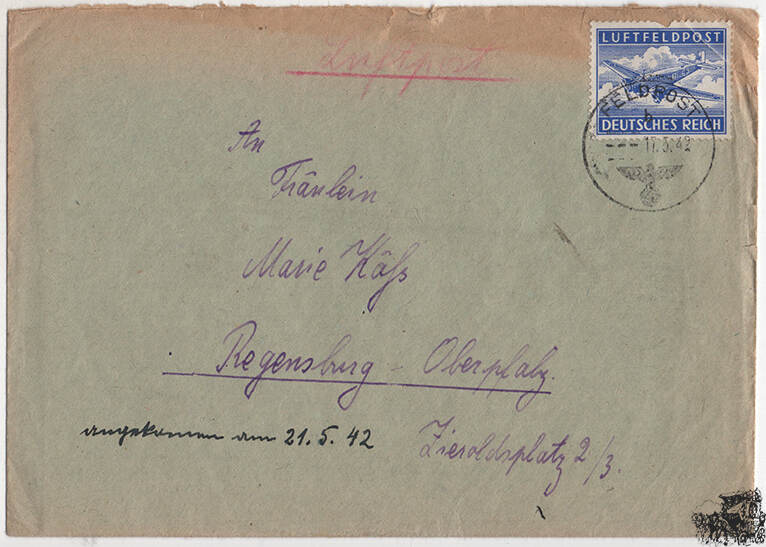 Luftpost
LUFTFELDPOST
DEUTSCHES REICH
FELDPOST
b
17.5.42
An
Fräulein
Marie
Regensburg - Oberpfalz.
angekommen am 21.5.42
Zieroldsplatz 2/3.